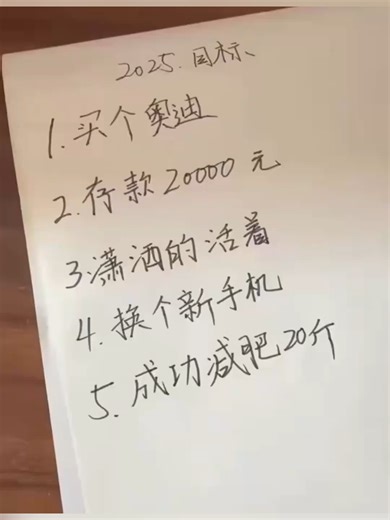 2025.目标、
1.买个奥迪
2.存款20000元
3.潇洒的活着
4.换个新手机
5.成功减肥20斤